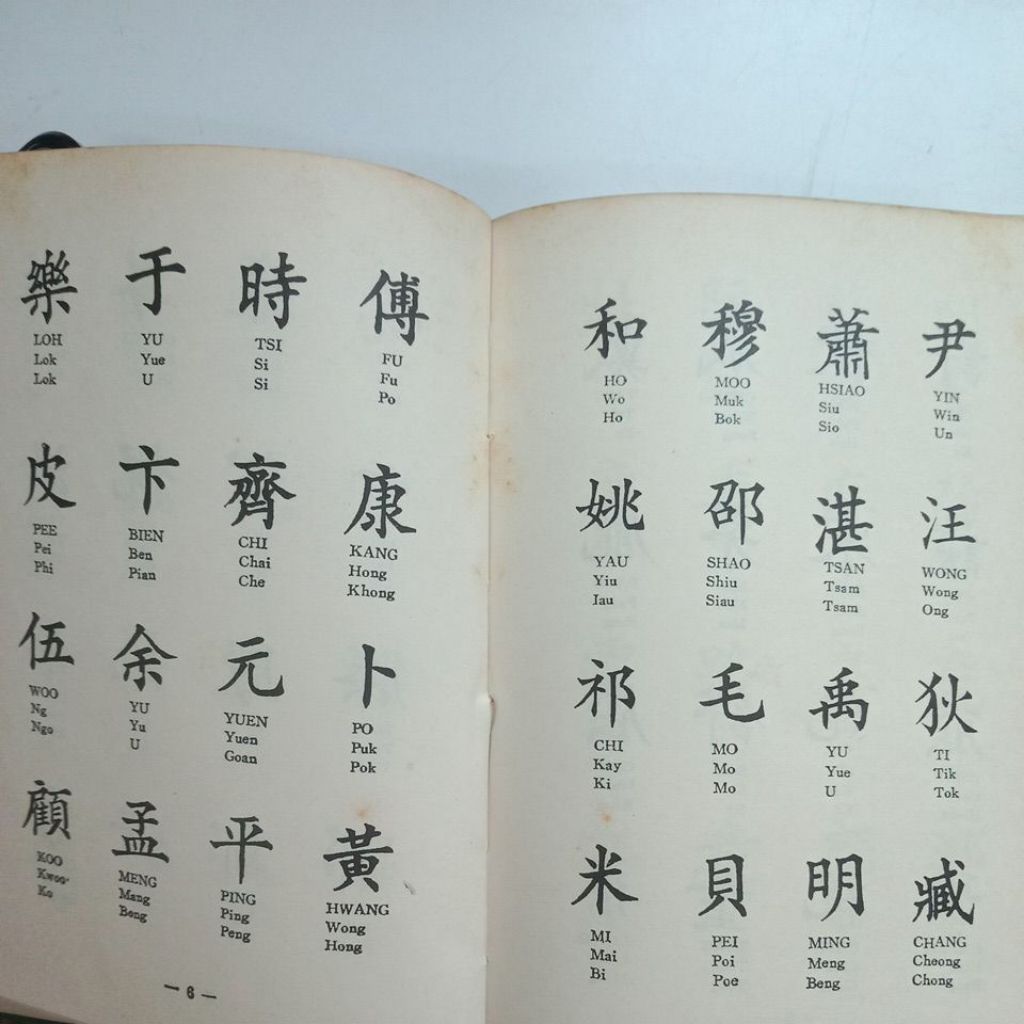 樂 于 時 傅
LOH YU TSI FU
Lok Yue Si Fu
Lok U Si Po
皮 卞 齊 康
PEE BIEN CHI KANG
Pei Ben Chai Hong
Phi Pian Che Khong
伍 余 元 卜
WOO YU YUEN PO
Ng Yu Yuen Puk
Ngo U Goan Pok
顧 孟 平 黃
KOO MENG PING HWANG
Kwoo Mang Ping Wong
Ko Beng Peng Hong
— 6 —
和 穆 蕭 尹
HO MOO HSIAO YIN
Wo Muk Siu Win
Ho Bok Sio Un
姚 邵 湛 汪
YAU SHAO TSAN WONG
Yiu Shiu Tsam Wong
Iau Siau Tsam Ong
祁 毛 禹 狄
CHI MO YU TI
Kay Mo Yue Tik
Ki Mo U Tok
米 貝 明 臧
MI PEI MING CHANG
Mai Poi Meng Cheong
Bi Poe Beng Chong